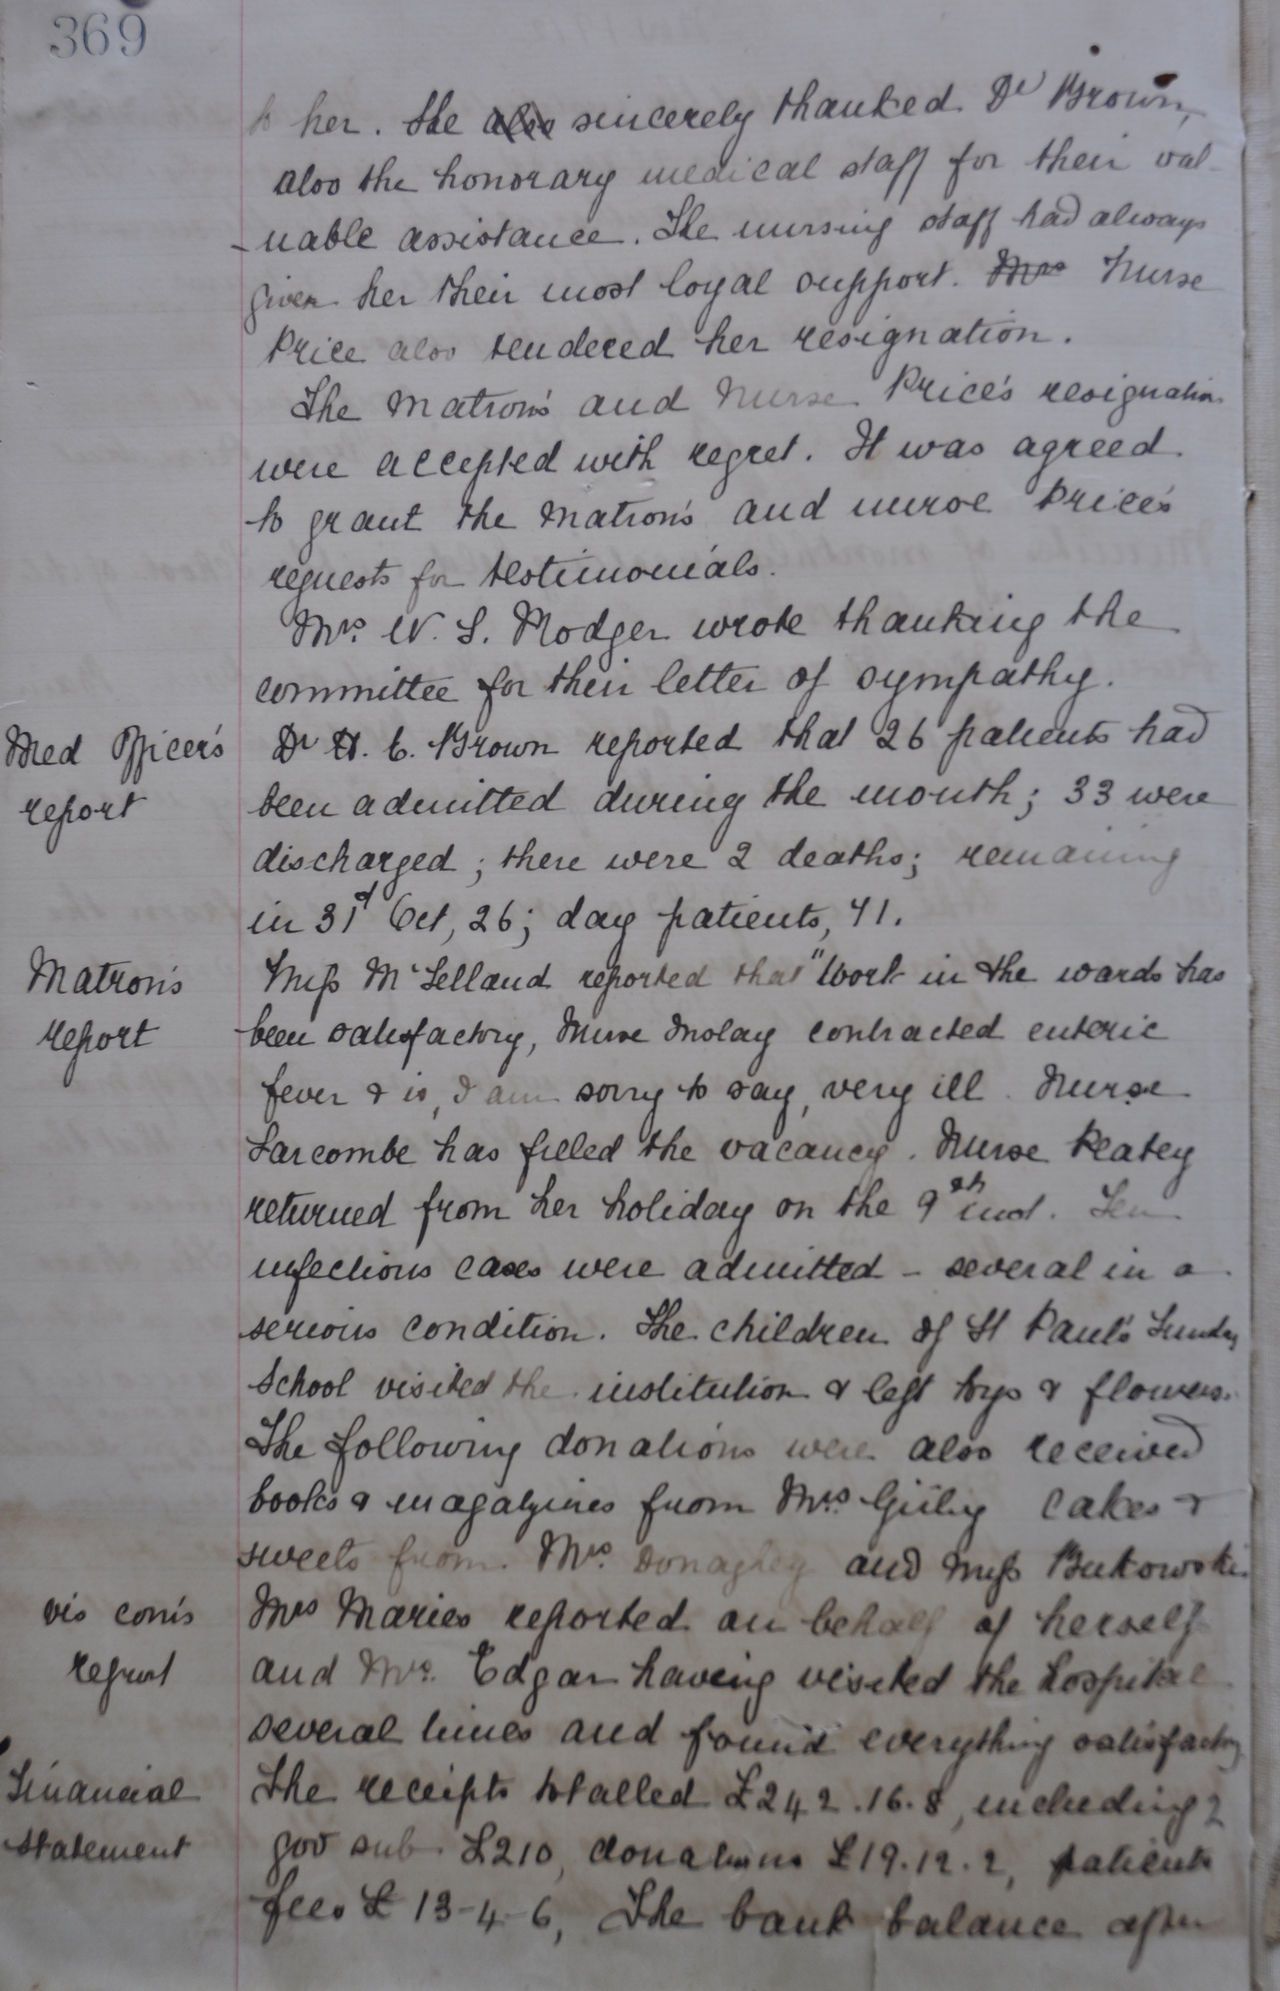 369
to her. She also sincerely thanked Dr Brown,
also the honorary medical staff for their val-
-uable assistance. The nursing staff had always
given her their most loyal support. Mrs Nurse
Price also tendered her resignation.
The Matron's and Nurse Price's resignation
were accepted with regret. It was agreed
to grant the Matron's and nurse Price's
requests for testimonials.
Mrs. W. S. Modger wrote thanking the
committee for their letter of sympathy.
Med Officer's
report
Dr H. E. Brown reported that 26 patients had
been admitted during the month; 33 were
discharged; there were 2 deaths; remaining
in 31st Oct, 26; day patients, 41.
Matron's
report
Miss McLelland reported that "Work in the wards has
been satisfactory, Nurse Molay contracted enteric
fever & is, I am sorry to say, very ill. Nurse
Larcombe has filled the vacancy. Nurse Peatey
returned from her holiday on the 9th inst. Ten
infectious cases were admitted - several in a
serious condition. The children of St Paul's Sunday
School visited the institution & left toys & flowers.
The following donations were also received
books & magazines from Mrs. Giiby cakes &
sweets from Mrs. Donaghey and Miss Bukowski.
vis com's
report
Mrs Maries reported on behalf of herself
and Mrs. Edgar having visited the hospital
several times and found everything satisfactory
Financial
statement
The receipts totalled £242.16.8, including
gov sub. £210, donations £19.12.2, patients
fees £13-4-6, The bank balance after